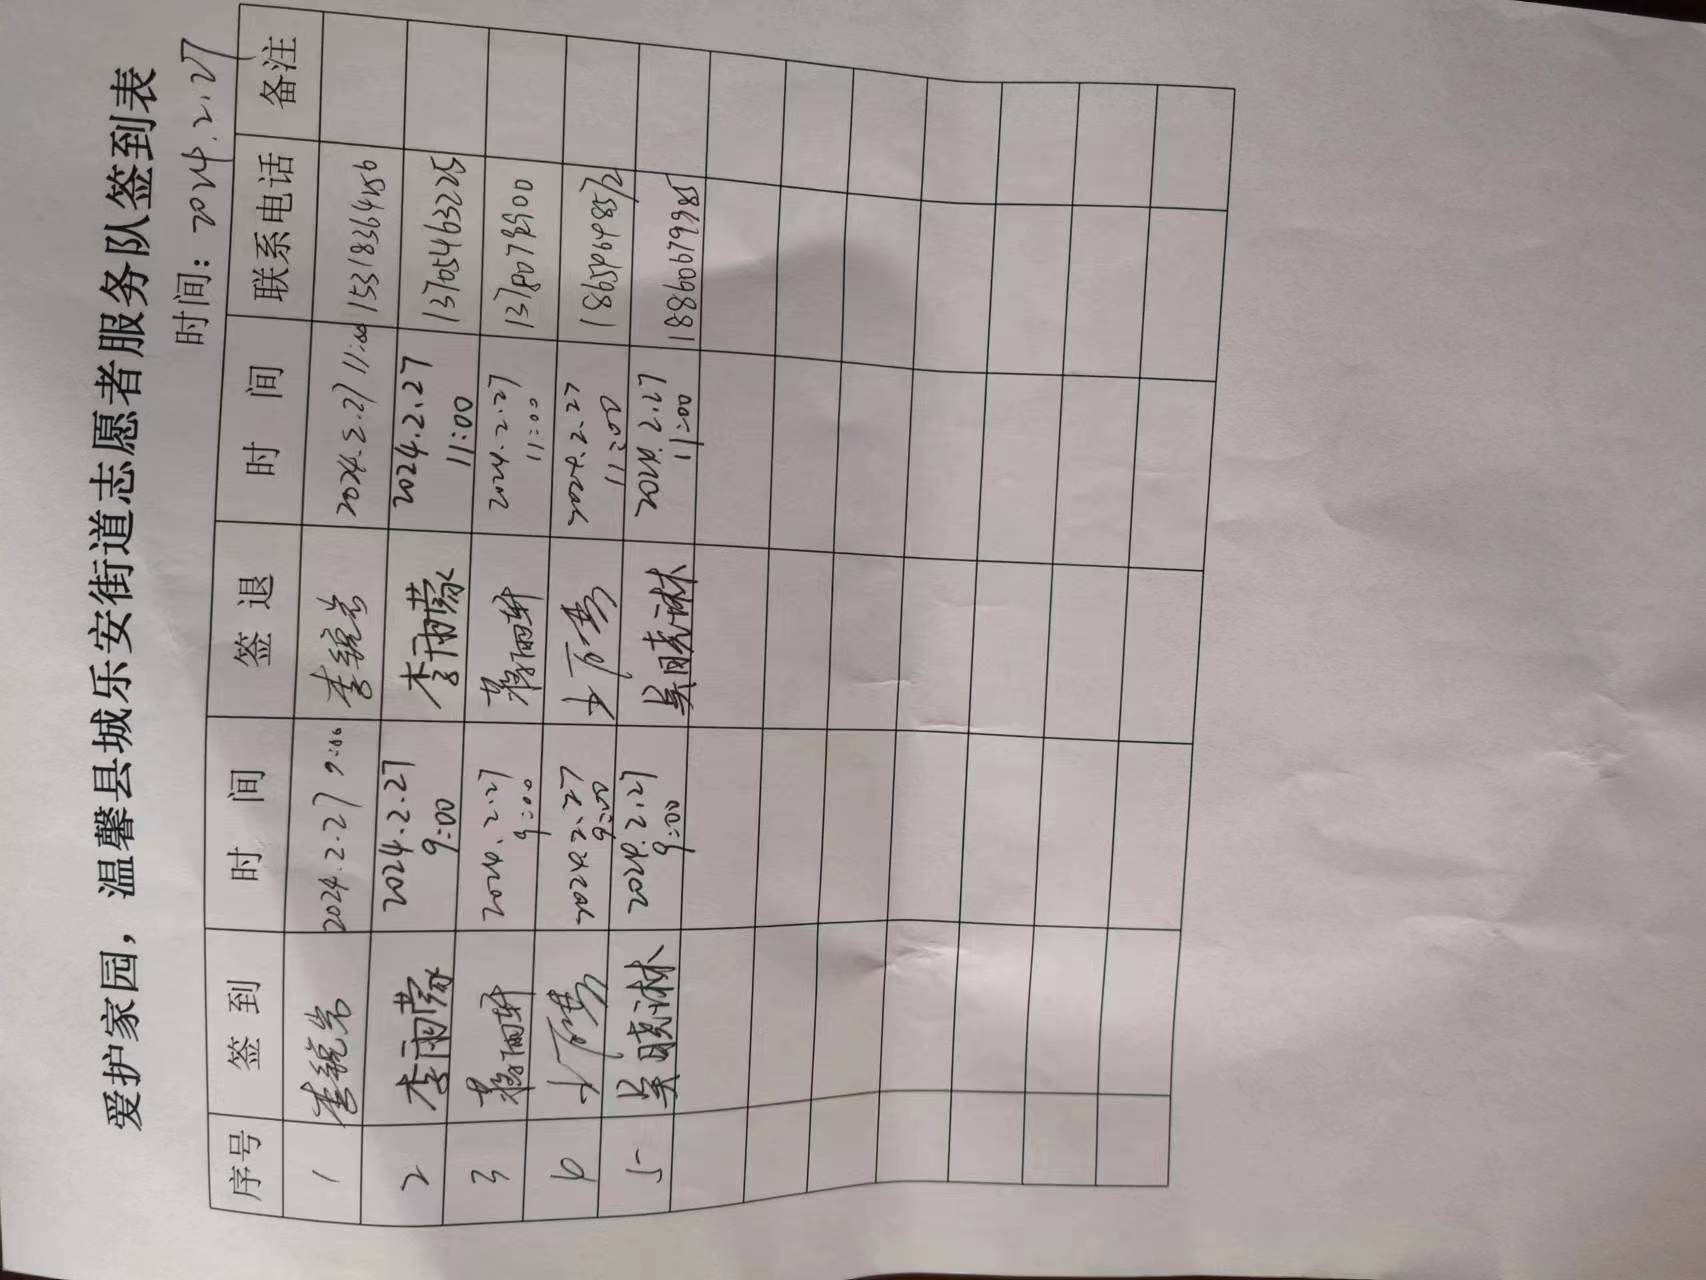 爱护家园，温馨县城乐安街道志愿者服务队签到表
时间：2024.2.27
序号 签到 时间 签退 时间 联系电话 备注
1 李锐岩 2024.2.27 9:00 李锐岩 2024.2.27 11:00 15318364456
2 李雨蒙 2024.2.27 9:00 李雨蒙 2024.2.27 11:00 13705463225
3 2024.2.27 9:00 2024.2.27 11:00
2024.2.27 9:00 2024.2.27 11:00
5 吴晓淋 2024.2.27 9:00 吴晓淋 2024.2.27 11:00 18860679985